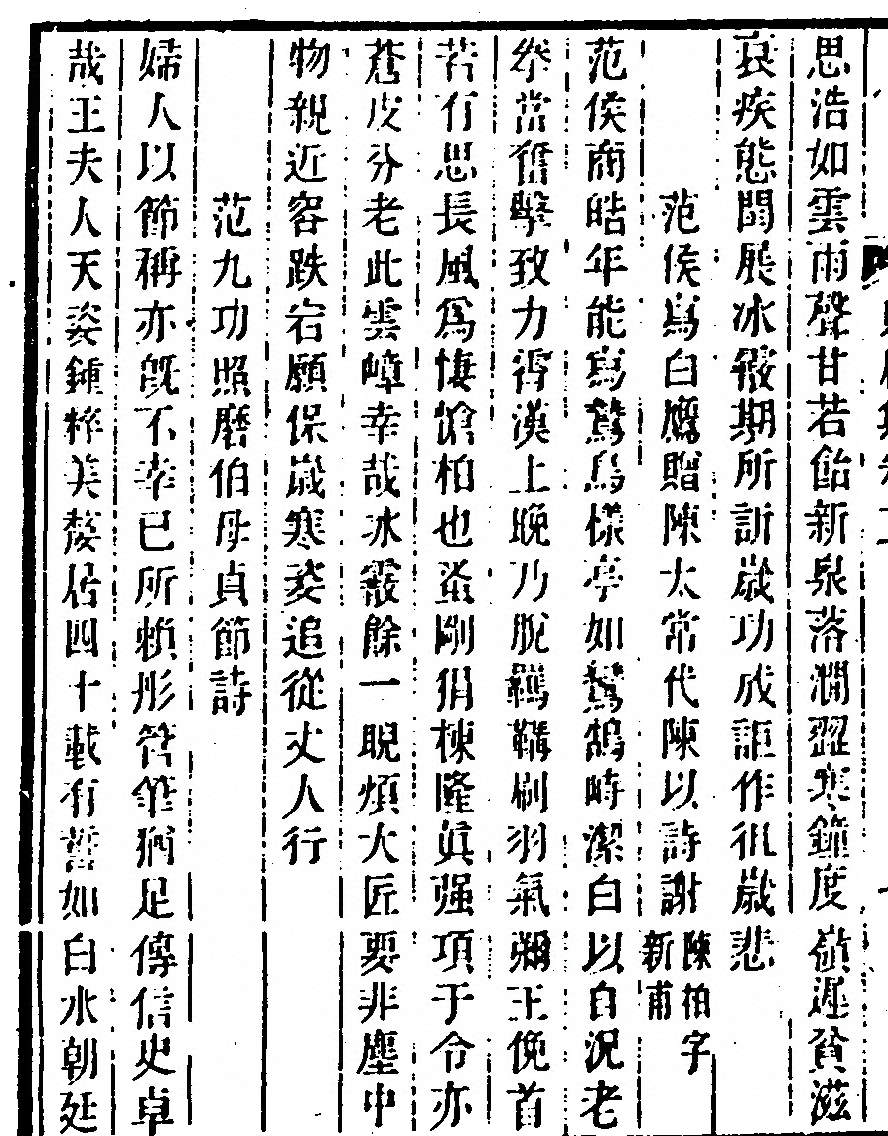 思浩如雲雨聲甘若飴新泉落澗澀寒鐘度嶺遲貧滋
衰疾態閱展冰霰期所訢歲功成詎作徂歲悲
范侯寫白鷹贈陳太常代陳以詩謝陳柏字新甫
范侯商皓年能寫鷙鳥樣亭如鷲鵠峙潔白以自況老
拳當奮擊致力霄漢上晚乃脫羈韝刷羽氣彌王俛首
若有思長風為悽愴柏也蚤剛狷棟隆眞强項于今亦
蒼皮分老此雲嶂幸哉冰霰餘一睨煩大匠要非塵中
物親近容跌宕願保歲寒姿追從丈人行
范九功照磨伯母貞節詩
婦人以節稱亦旣不幸已所賴彤管筆猶足傳信史卓
哉王夫人天姿鍾粹美嫠居四十載有誓如白水朝廷